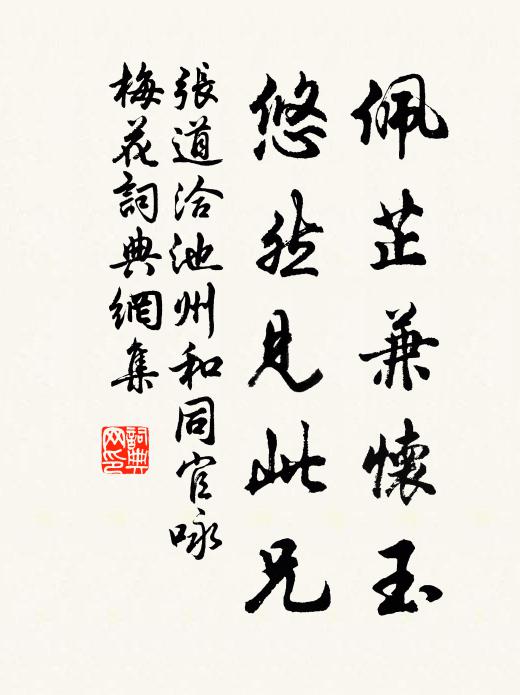 佩芷兼懷玉
悠然見此兄
張道洽池州和同官咏
梅花詞典網集
詞典
网印